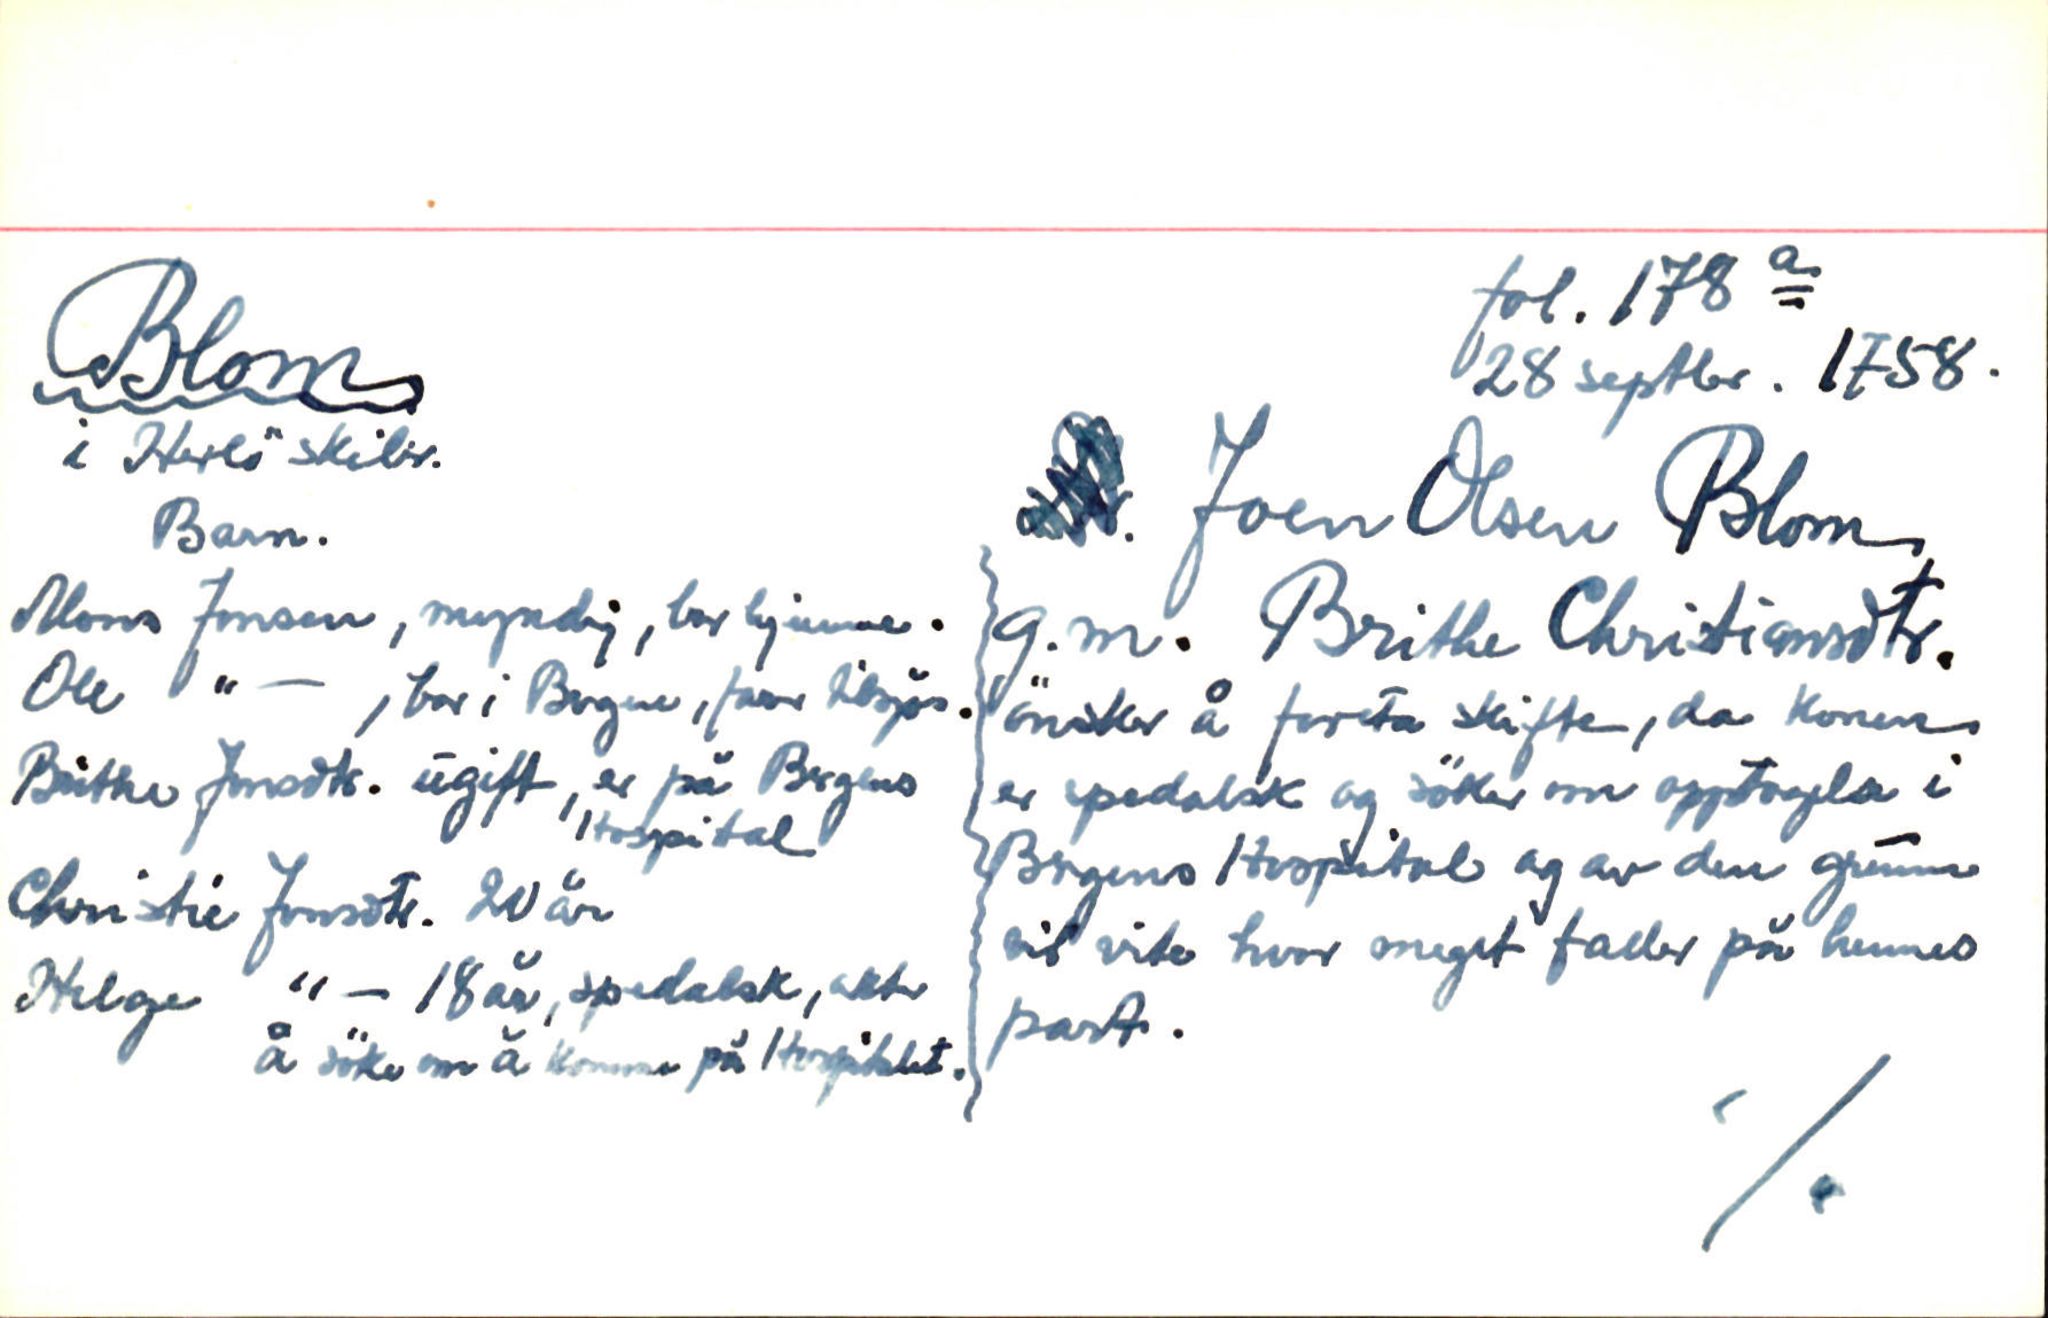 fol. 178 a
28 septbr. 1758.
Blom
i Herlö skibr.
Joen Olsen Blom
g.m. Brithe Christiansdtr.
önsker å foreta skifte, da konen
er spedalsk og söker om opptagelse i
Bergens Hospital og av den grunn
vil vite hvor meget faller på hennes
part.
Barn.
Mons Jonsen, myndig, bor hjemme.
Ole " — , bor i Bergen, farer tilsjös.
Brithe Jonsdtr. ugift, er på Bergens
Hospital
Christie Jonsdtr. 20 år
Helge " — 18 år, spedalsk, akter
å söke om å komme på Hospitalet.
./.